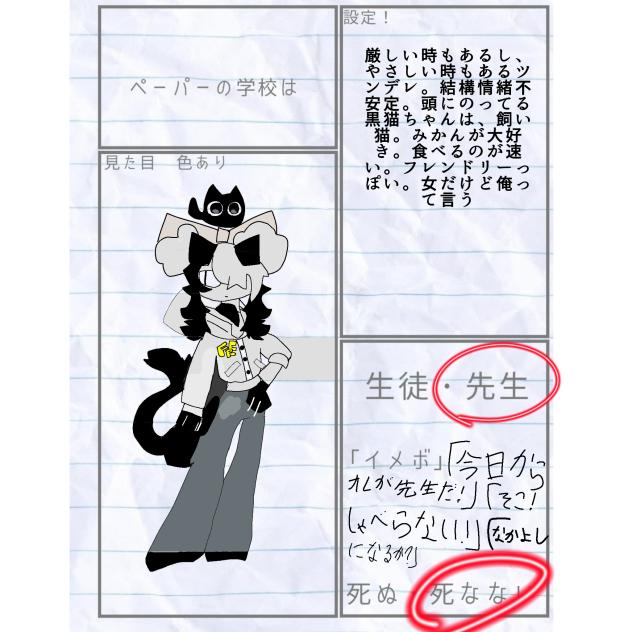 ペーパーの学校は
設定！
厳しい時もあるし、
やさしい時もあるツ
ンデレ。結構情緒不
安定。頭にのってる
黒猫ちゃんは、飼い
猫。みかんが大好
き。食べるのが速
い。フレンドリーっ
ぽい。女だけど俺っ
て言う
見た目　色あり
生徒・先生
「イメボ」「今日から
オレが先生だ!」「そこ!
しゃべらない!!」「なかよし
になるか?」
死ぬ　死なない